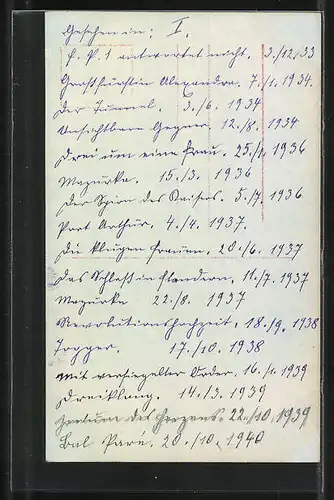 Gesehen in: I.
F. P. 1 antwortet nicht. 3./12. 33
Großfürstin Alexandra. 7./1. 1934.
Der Tunnel. 3./6. 1934
Unsichtbare Gegner. 12./8. 1934
Drei um eine Frau. 25./1. 1936
Mazurka. 15./3. 1936
Der Spion des Kaisers. 5./7. 1936
Port Arthur. 4./4. 1937.
Die klugen Frauen. 20./6. 1937
Das Schloß in Flandern. 11./7. 1937
Mazurka 22./8. 1937
Revolutionshochzeit. 18./9. 1938
Togger. 17./10. 1938
Mit versiegelter Order. 16./1. 1939
Dreiklang. 14./3. 1939
Zentrum des Herzens. 22./10. 1939
Bal Pare. 20./10. 1940